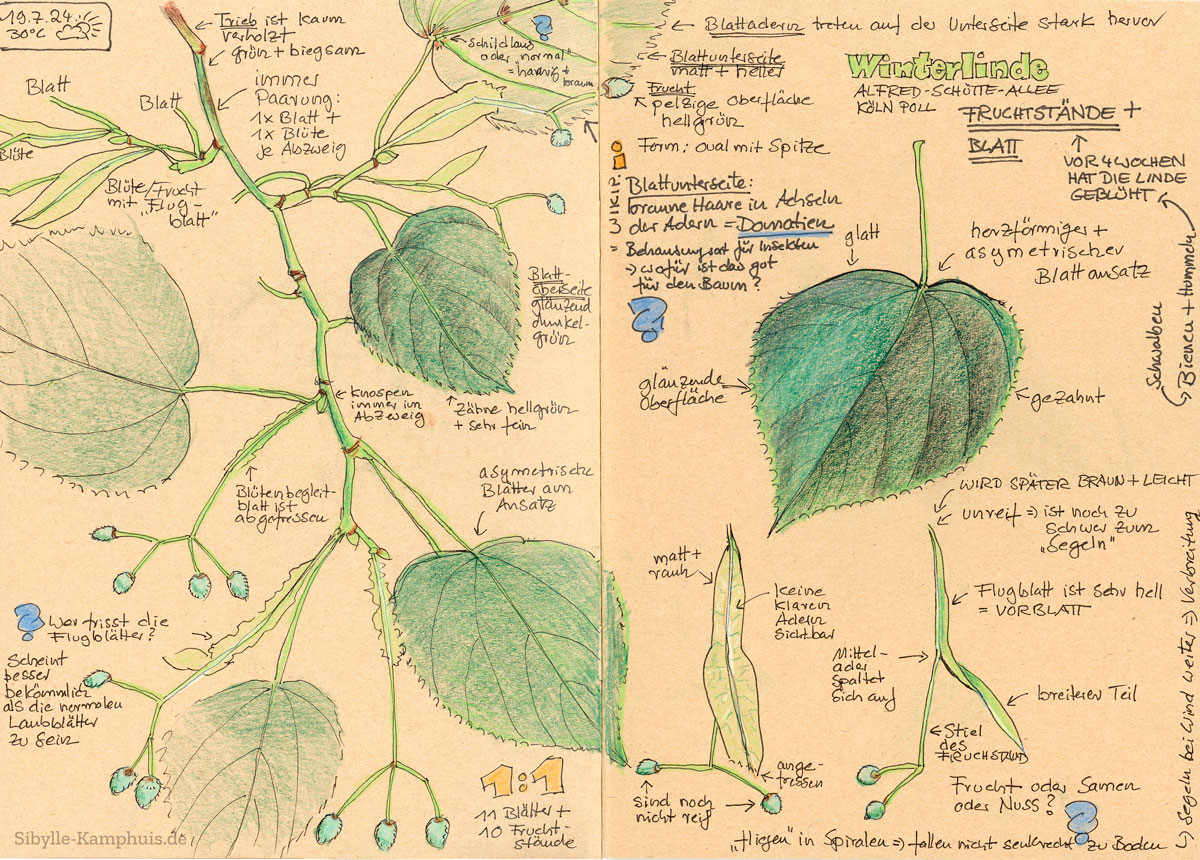 19.7.24
30°C
Trieb ist kaum
verholzt
grün + biegsam
immer
Paarung:
1x Blatt +
1x Blüte
je Abzweig
Blatt
Blatt
Blüte
Blüte/Frucht
mit "Flug-
blatt"
?
schildlaus
oder "normal"
= haarig +
braun
Blatt-
oberseite
glänzend
dunkel-
grün
Knospen
immer im
Abzweig
Zähne hellgrün
+ sehr fein
Blütenbegleit-
blatt ist
abgefressen
asymetrische
Blätter am
Ansatz
? Wer frisst die
Flugblätter?
Scheint
besser
bekömmlich
als die normalen
Laubblätter
zu sein
1:1
11 Blätter +
10 Frucht-
stände
Sibylle-Kamphuis.de
Blattadern treten auf der Unterseite stark hervor
Blattunterseite
matt + heller
Frucht
pelzige Oberfläche
hellgrün
Form: oval mit Spitze
Winterlinde
ALFRED-SCHÜTTE-ALLEE
KÖLN POLL
FRUCHTSTÄNDE +
BLATT
VOR 4 WOCHEN
HAT DIE LINDE
GEBLÜHT
Schwalben
Bienen + Hummeln
i
WIKI:
Blattunterseite:
braune Haare in Achseln
der Adern = Domatien
= Behausungsort für Insekten
→ wofür ist das gut
für den Baum?
?
glatt
herzförmiger +
asymetrischer
Blattansatz
glänzende
Oberfläche
gezahnt
WIRD SPÄTER BRAUN + LEICHT
unreif ⇒ ist noch zu
schwer zum
"Segeln"
matt +
rauh
keine
klaren
Adern
sichtbar
Flugblatt ist sehr hell
= VORBLATT
Mittel-
ader
spaltet
sich auf
breiterer Teil
Stiel
des
FRUCHTSTAND
ange-
fressen
sind noch
nicht reif
Frucht oder Samen
oder Nuss?
?
"fliegen" in Spiralen ⇒ fallen nicht senkrecht zu Boden
↳ Segeln bei Wind weiter ⇒ Verbreitung